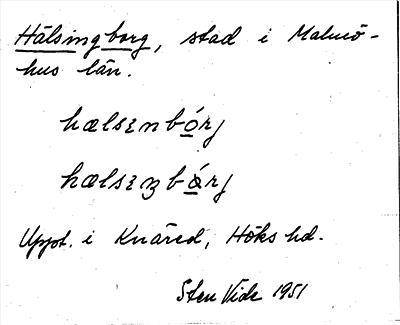 Hälsingborg, stad i Malmö-
hus län.
hælsɪnbǫ́rj
hælsɪŋbǫ́rj
Uppt. i Knäred, Höks hd.
Sten Vide 1951